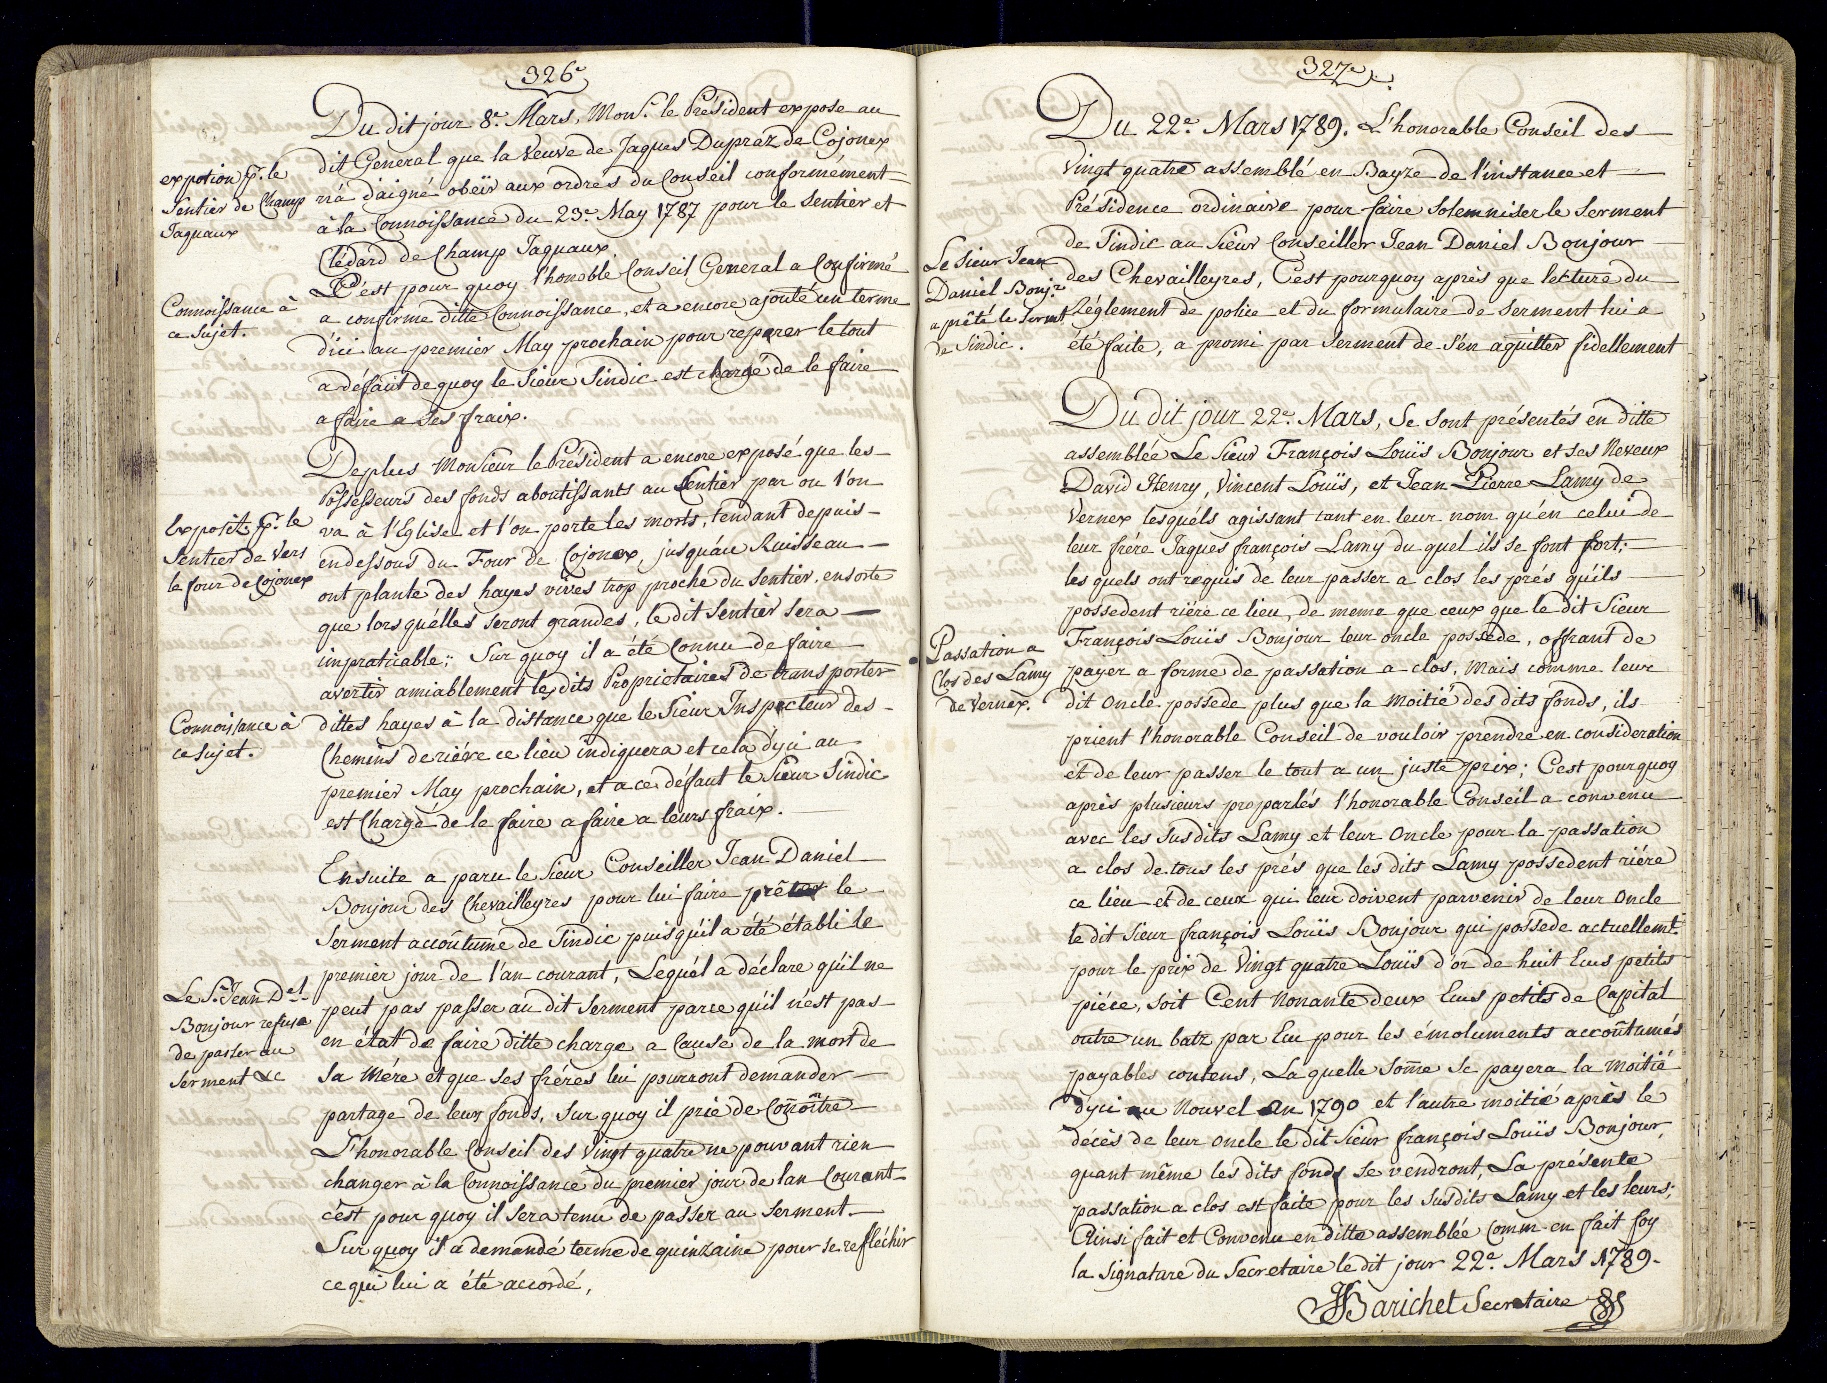 326e
Du dit jour 8e. Mars, Mons.r le Président expose au
dit General que la veuve de Jaques Dupraz de Cojonex
n'à daigné obeïr aux ordres du Conseil conformément
à la Connoissance du 23e. May 1787 pour le sentier et
Clédard de Champ Jaquaux
C'est pour quoy l'honoble Conseil General a Confirmé
a confirme ditte Connoissance, et a encore ajouté un terme
d'ici au premier May prochain pour reparer le tout
a défaut de quoy le Sieur Sindic est chargé de le faire
a faire a ses fraix.
expotion pr. le
Sentier de Champ
Jaquaux
Connoissance à
ce sujet.
De plus Monsieur le Président a encore exposé que les
Possesseurs des fonds aboutissants au Sentier par ou l'on
va à l'Eglise et l'on porte les morts, tendant depuis
endessous du Four de Cojonex, jusqu'au Ruisseau
ont planté des hayes vives trop proche du sentier, ensorte
que lors qu'elles seront grandes, le dit sentier sera
impraticable; Sur quoy il a été Connu de faire
avertir amiablement les dits Proprietaires de transporter
dittes hayes à la distance que le Sieur Inspecteur des
Chemins de riére ce lieu indiquera et cela d'yci au
premier May prochain, et a ce défaut le Sieur Sindic
est Chargé de le faire a faire a leurs fraix.
Exposit: pr. le
Sentier de vers
le four de Cojonex
Connoissance à
ce sujet.
Ensuite a paru le Sieur Conseiller Jean Daniel
Bonjour des Chevailleyres pour lui faire prêter le
Serment accoûtumé de Sindic puisqu'il a été établi le
premier jour de l'an courant, Lequél a déclare qu'il ne
peut pas passer au dit serment parce qu'il n'est pas
en état de faire ditte charge a Cause de la mort de
sa Mére et que ses fréres lui pourront demander
partage de leur fonds, sur quoy il prie de Connoître
L'honorable Conseil des Vingt quatre ne pouvant rien
changer à la Connoissance du premier jour de lan Courant
c'est pour quoy il sera tenu de passer au serment
Sur quoy il a demandé terme de quinzaine pour se refléchir
ce qui lui a été accordé,
Le Sr. Jean Del.
Bonjour refuse
de passer au
serment &c
327e
Du 22e. Mars 1789. L'honorable Conseil des
Vingt quatre assemblé en Bayze de l'instance et
Présidence ordinaire pour faire solemniser le serment
de Sindic au Sieur Conseiller Jean Daniel Bonjour
des Chevailleyres, C'est pourquoy après que lecture du
Réglement de police et du formulaire de serment lui a
été faite, a promi par serment de s'en aquitter fidellement
Le Sieur Jean
Daniel Bonjr.
a prêté le Sermt
de Sindic.
Du dit jour 22e. Mars, Se sont présentés en ditte
assemblée Le Sieur François Louïs Bonjour et ses Neveux
David Henry, Vincent Louïs, et Jean Pierre Lamy de
Vernex lesquéls agissant tant en leur nom qu'en celui de
leur frére Jaques françois Lamy du quel ils se font fort;
les quels ont requis de leur passer a clos les prés qu'ils
possedent riére ce lieu, de meme que ceux que le dit Sieur
François Louïs Bonjour leur oncle posséde, offrant de
payer a forme de passation a clos, Mais comme leur
dit Oncle posséde plus que la Moitié des dits fonds, ils
prient l'honorable Conseil de vouloir prendre en consideration
et de leur passer le tout a un juste prix; C'est pourquoy
après plusieurs proparlés l'honorable Conseil a convenu
avec les susdits Lamy et leur Oncle pour la passation
a clos de tous les prés que les dits Lamy possedent riére
ce lieu et de ceux qui leur doivent parvenir de leur Oncle
le dit Sieur françois Louïs Bonjour qui posséde actuellemt.
pour le prix de Vingt quatre Louïs d'or de huit Ecus petits
piéce, soit Cent Nonante deux Ecus petits de Capital
outre un batz par Ecu pour les émoluments accoûtumés
payables contens, La quelle Some se payera la moitié
dyci au Nouvel An 1790 et l'autre moitié après le
décès de leur Oncle le dit Sieur françois Louïs Bonjour,
quant même les dits fonds se vendront, La présente
passation a clos est faite pour les susdits Lamy et les leurs;
Ainsi fait et Convenu en ditte assemblée Comm en fait foy
la signature du Secretaire le dit jour 22e. Mars 1789.
Passation a
Clos des Lamy
de Vernex.
JBarichet Secretaire